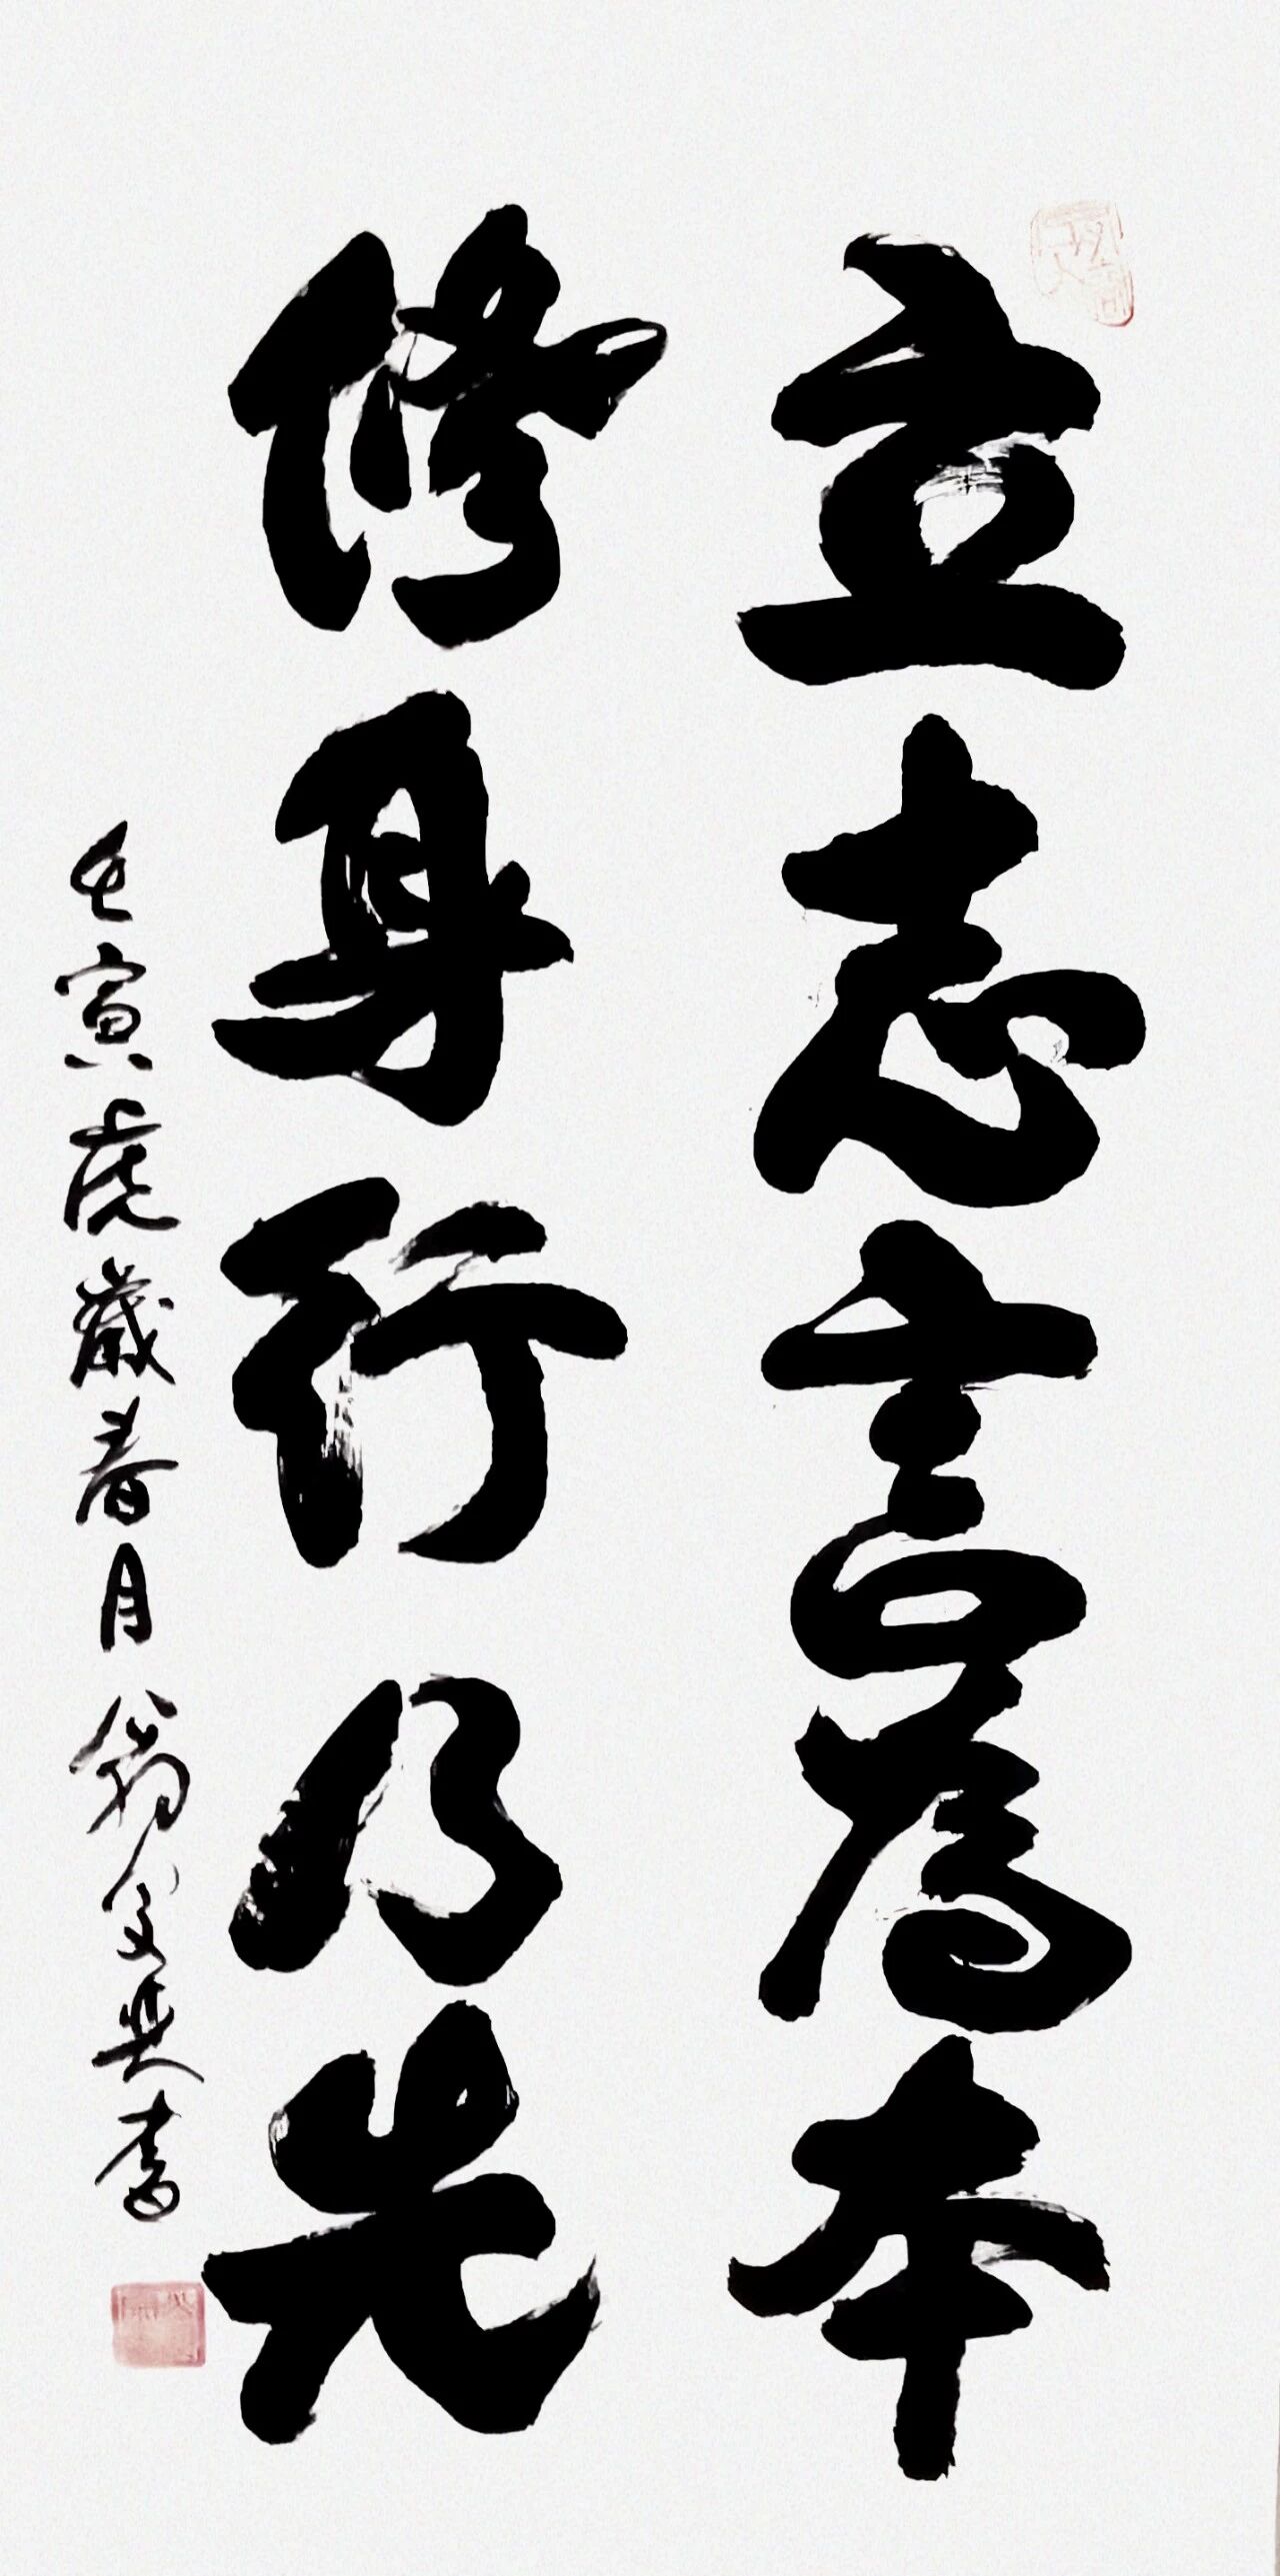 立志言為本
修身行乃先
壬寅虎歲春月翁文典書